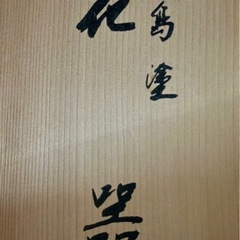 島塗
花器